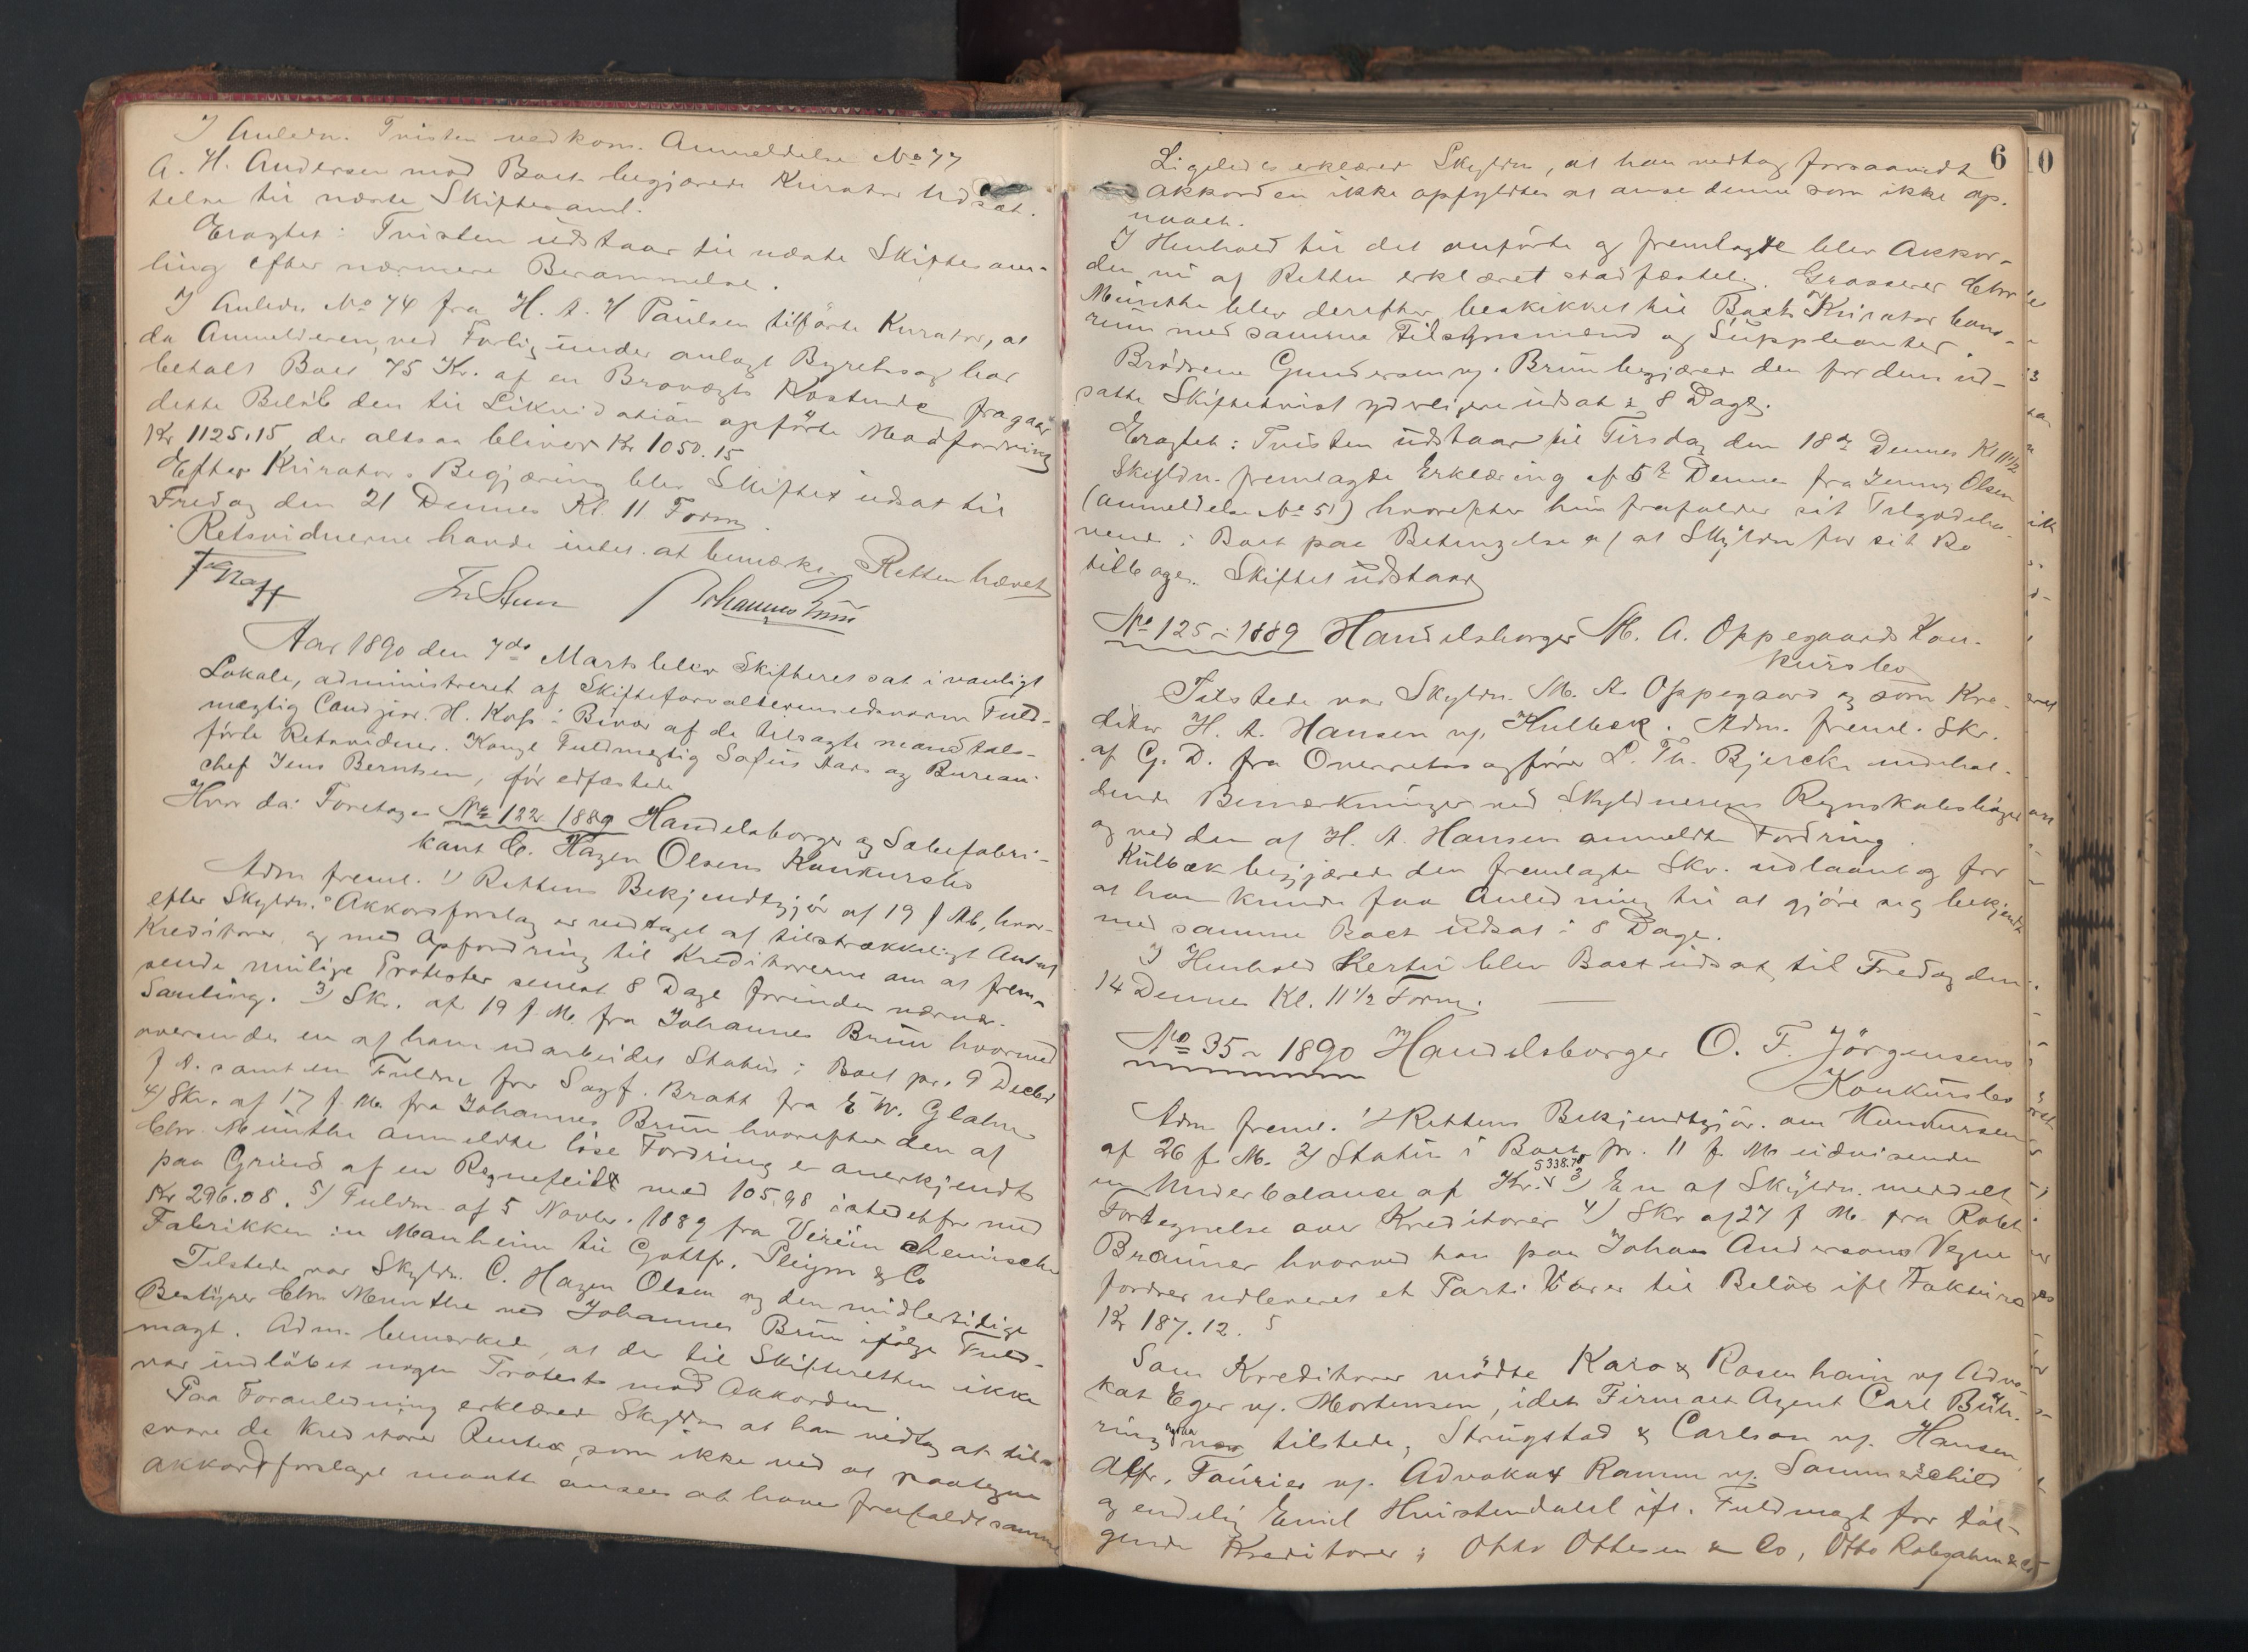 I Anledn. Tvisten vedkom. Anmeldelse No 77
A. H. Andersen mod Boet begjærede Kurator Udsæt-
telse til næste Skiftesaml.
Eragtet: Tvisten udstaar til næste Skiftesam-
ling efter nærmere Berammelse.
I Anledn No 74 fra H. A. H Paulsen tilførte Kurator, at
da Anmelderen, ved Forlig under anlagt Byretssag har
betalt Boet 75 Kr. af en Brovægts Kostende fragaar
dette Beløb den til Likvidation opførte Modfordring
Kr 1125.15, der altsaa bliver Kr 1050.15
Efter Kurators Begjæring blev Skiftet udsat til
Fredag den 21 Dennes Kl. 11 Form.
Retsvidnerne havde intet at bemærke. Retten hævet
Johannes Bruun
Aar 1890 den 7de Marts blev Skifteret sat i vanligt
Lokale, administreret af Skifteforvalterens edsvorne Fuld-
mægtig Cand jur. H. Koss i Bivær af de tilsagte mandtals-
førte Retsvidner. Kongl Fuldmegtig Sofus Aars og Bureau-
chef Jens Berntsen, før edfæstede
Hvor da: Foretoges No 122 1889 Handelsborger og Sæbefabri-
kant C. Hagen Olsens Konkursbo
Adm freml. 1) Rettens Bekjendtgjør af 19 f Mts, hvor-
efter Skyldn.s Akkordforslag er vedtaget af tilstrækkeligt Antal
Kreditorer, og med Opfordring til Kreditorerne om at frem-
sende mulige Protester senest 8 Dage forinden nærvær.
Samling. 3) Skr. af 19 f. M. fra Johannes Bruun hvormed
oversendes en af ham udarbeidet Status i Boet pr. 9 Decbr
f A. samt en Fuldm for Sagf. Bratt fra E W. Glahn
4) Skr. af 17 f. M. fra Johannes Bruun hvorefter den af
Chr. Münthe anmeldte løse Fordring er anerkjendt
paa Grund af en Regnefeil med 105.98 istedetfor med
Kr 296.08. 5) Fuldm. af 5 Novbr. 1889 fra Verein chemischer
Fabrikken in Manheim til Gottfr. Pleym & Co
Tilstede var Skyldn. C. Hagen Olsen og den midlertidige
Bestyrer Chr. Münthe ved Johannes Bruun ifølge Fuld-
magt. Adm. bemærket, at der til Skifteretten ikke
var indløbet nogen Protest mod Akkorden
Paa Foranledning erklærede Skyldn at han vedtog at til-
svare de Kreditorer Renter, som ikke ved at paategne
Akkordforslaget maatte ansees at have frafaldt samme
6
Ligeledes erklærede Skyldn, at han vedtog forsaavidt
Akkorden ikke opfyldtes at anse denne som ikke op-
naaet.
I Henhold til det anførte og fremlagte blev Akkor-
den nu af Retten erklæret stadfæstet. Grosserer Chr
Münthe blev derefter beskikket til Boets Kurator bono-
rum med samme Tilsynsmænd og Suppleanter.
Brødrene Gundersen v. Bruun begjærede den for dem ud-
satte Skiftetvist yderligere udsat i 8 Dage.
Eragtet: Tvisten udstaar til Tirsdag den 18de Dennes Kl 11½
Skyldn. fremlagde Erklæring af 5te Dennes fra Jenny Olsen
(anmeldelse No 51) hvorefter hun frafalder sit Tilgodeha-
vende i Boet paa Betingelse af at Skyldn faar sit Bo
tilbage. Skiftet udstaar
No 125-1889 Handelsborger M. A. Oppegaards Kon-
kursbo
Tilstede var Skyldn. M. A. Oppegaard og som Kre-
ditor H. A. Hansen v. Kulbæk. Adm. freml. Skr.
af G. D. fra Overretssagfører L. Th. Bjercke indehol-
dende Bemærkninger ved Skyldnerens Regnskabsbøger
og ved den af H. A. Hansen anmeldte Fordring.
Kulbæk begjærede den fremlagte Skr. udlaant og for
at han kunde faa Anledning til at gjøre sig bekjendt
med samme Boet udsat i 8 Dage.
I Henhold hertil blev Boet udsat til Fredag den
14 Dennes Kl. 11½ Form.
No 35-1890 Handelsborger O. F. Jörgensens
Konkursbo
Adm freml. 1) Rettens Bekjendtgjør. om Konkursen
af 26 f. M. 2) Status i Boet pr. 11 f. M. udvisende
5338.78
en Underbalance af Kr. 3) En af Skyldn. meddelt
Fortegnelse over Kreditorer 4) Skr af 27 f M. fra Robt
Brauner hvorved han paa Johan Andersons Vegne
fordrer udleveret et Parti Varer til Beløb ifl Faktura
Kr 187.12.
Som Kreditorer mødte Karo & Rosenhain v Advo-
kat Eger v. Mortensen, idet Firmaets Agent Carl Büh-
ring ogsaa var tilstede, Strugstad & Carlson v. Hansen,
Alfr. Fourier v. Advokat Ramm v. Sommerschild
og endelig Emil Hvistendahl ifl. Fuldmagt for føl-
gende Kreditorer: Otto Ottesen & Co, Otto Robsahm & Co